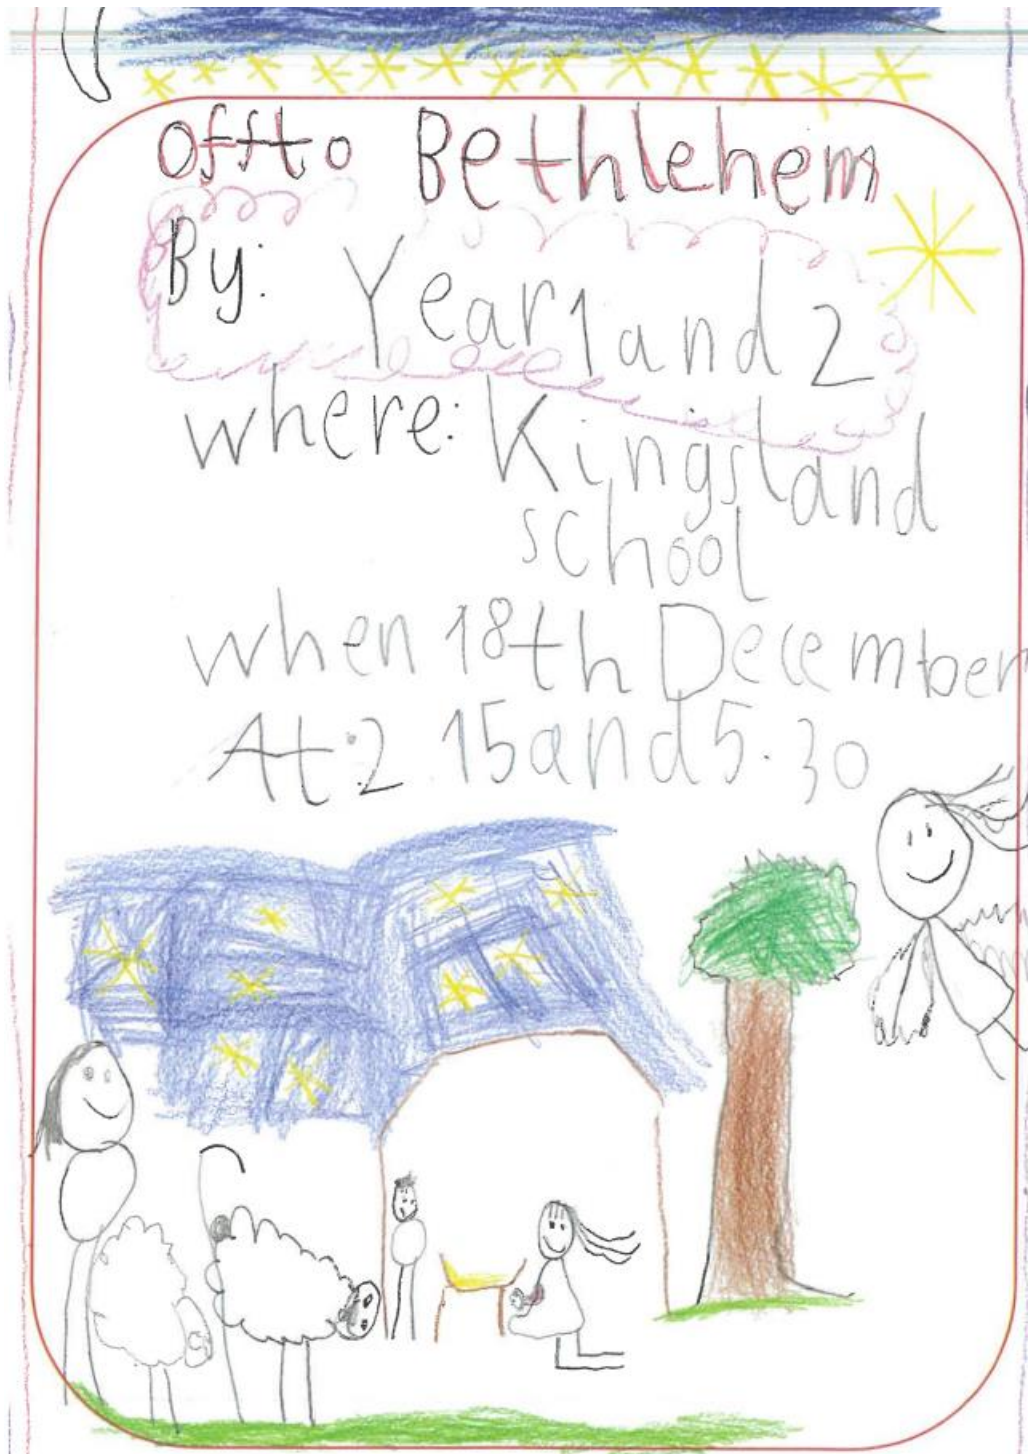 Offto Bethlehem
By: Year 1 and 2
where: Kingsland
school
when 18th December
At:2.15 and 5.30